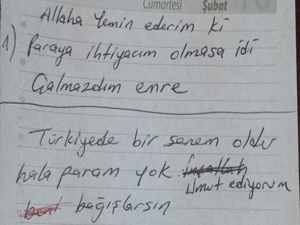 Cumartesi Şubat
Allaha Yemin ederim ki
1) Paraya ihtiyacım olmasa idi
Çalmazdım enre
Türkiyede bir senem oldu
hala param yok. İnşallah
Umut ediyorum
beni bağışlarsın